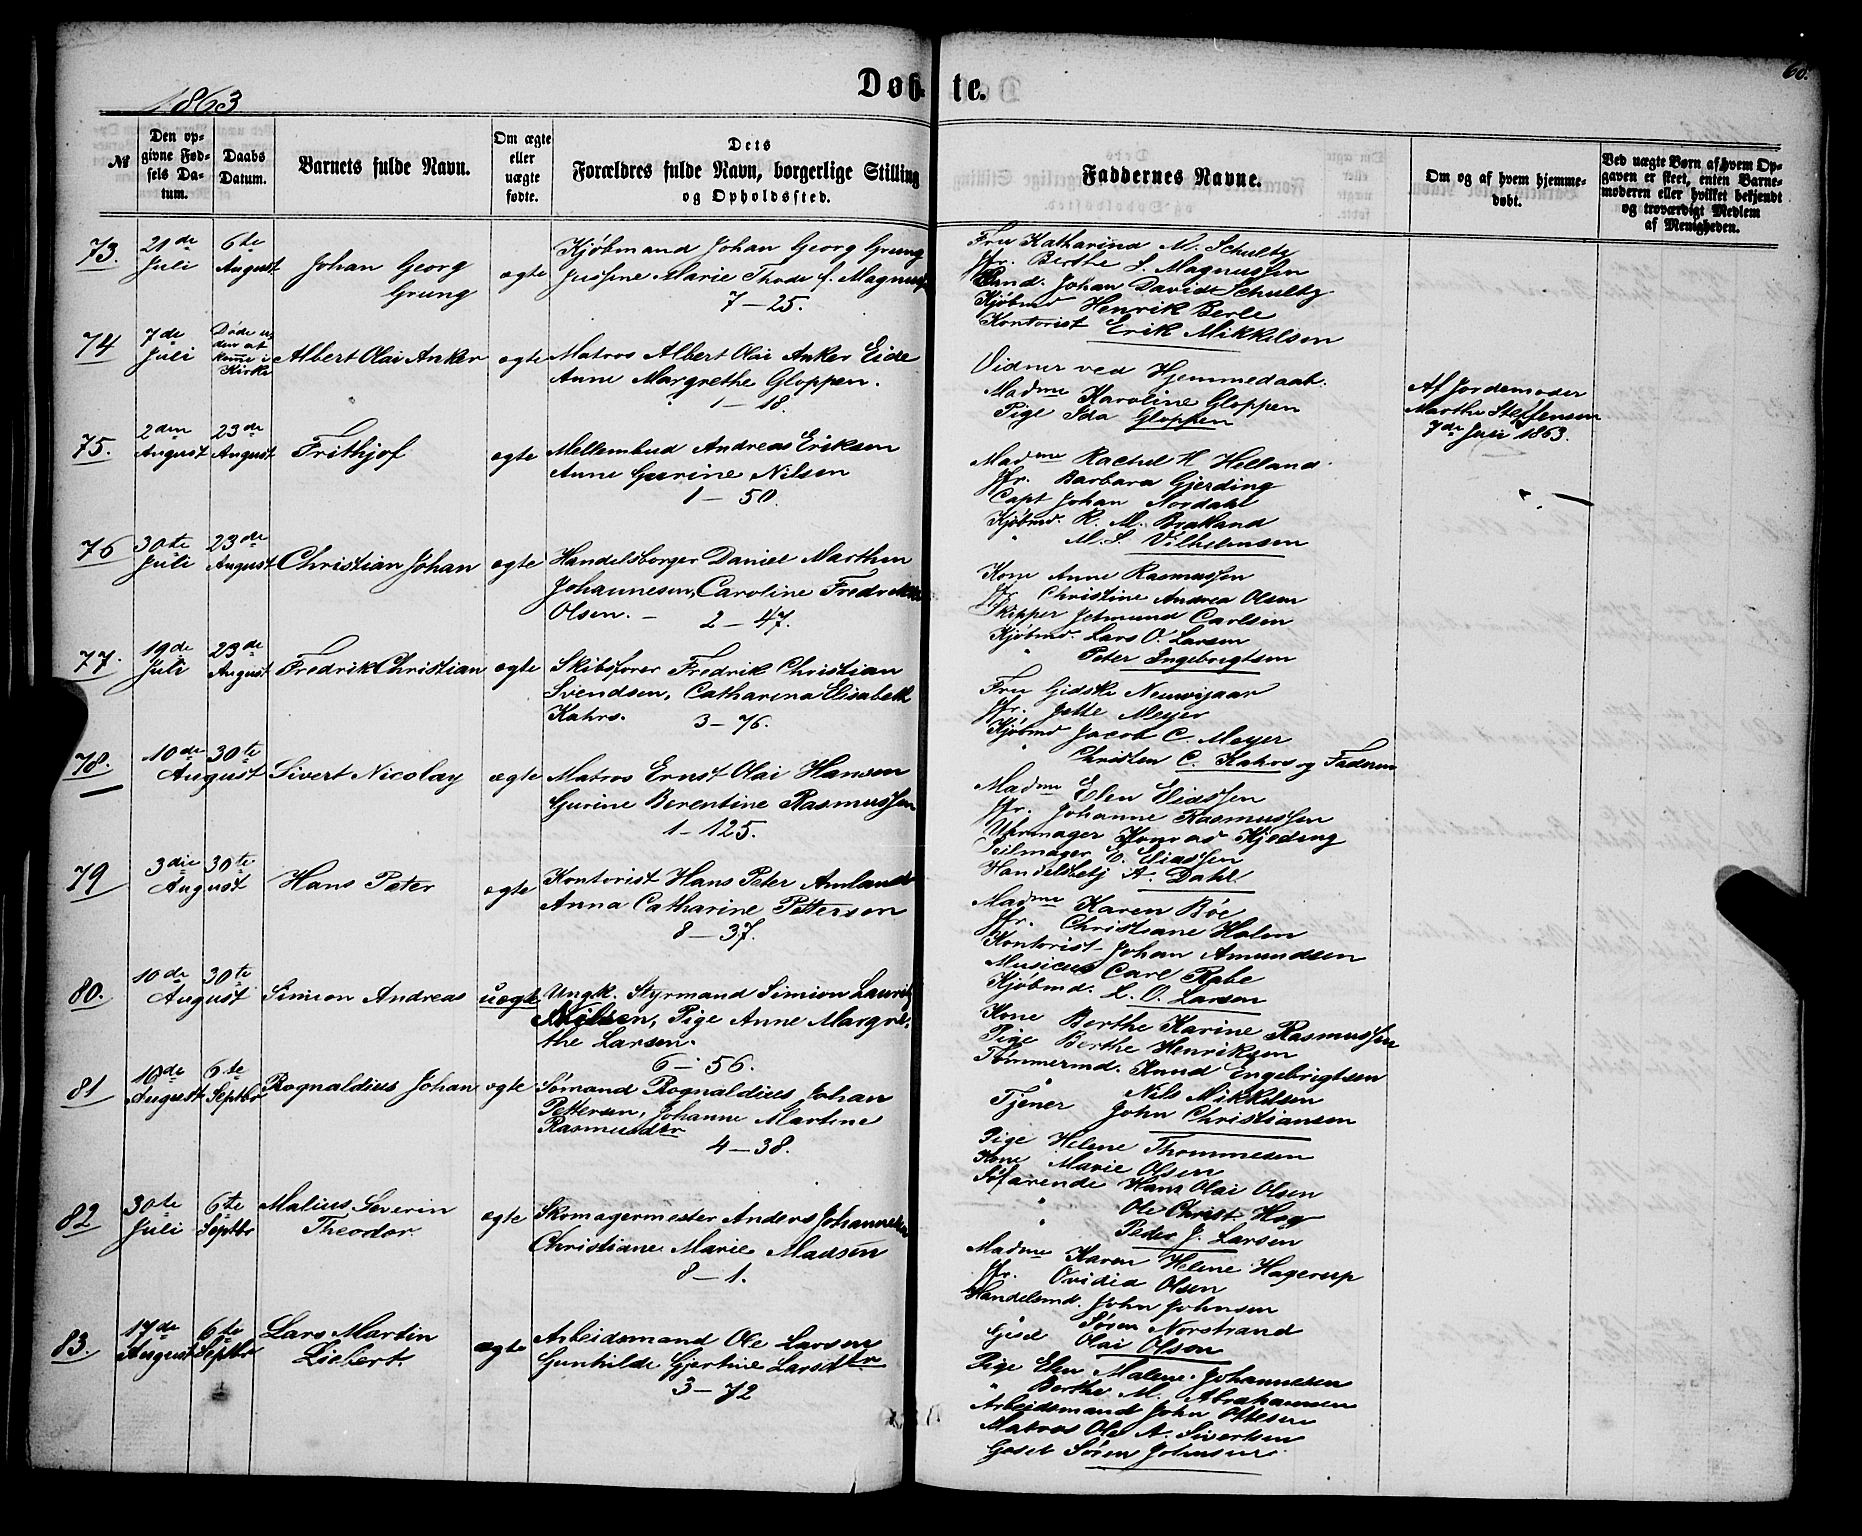 1863
Døbte.
60.
№
Den opgivne Fødsels Datum.
Daabs Datum.
Barnets fulde Navn.
Om ægte eller uægte fødte.
Dets Forældres fulde Navn, borgerlige Stilling og Opholdssted.
Faddernes Navne.
Om og af hvem hjemmedøbt.
Ved uægte Børn af hvem Opgaven er skeet, enten Barnemoderen eller hvilket bekjendt og troværdigt Medlem af Menigheden.
73.
21de Juli
6te August
Johan Georg
Grung
ægte
Kjøbmand Johan Georg Grung
Marie Thode f. Magnus
7 – 25.
Fru Katharina M. Schultz
Jfr. Berthe S. Magnussen
Johan David Schultz
Kjøbmd Henrik Berle
Kontorist Erik Mikkelsen
74
7de Juli
Døde uden at komme i Kirke
Albert Olai Anker
ægte
Matros Albert Olai Anker Eide
Anne Margrethe Gloppen.
1 – 18.
Vidner ved Hjemmedaab.
Madme Karoline Gloppen
Pige Ida Gloppen
Af Jordemoder
Marthe Steffensen
7de Juli 1863.
75.
2den August
23de August
Frithjof
ægte
Mellembud Andreas Eriksen
Anne Gurine Nilsen
1 – 50.
Madme Rachel H Helland.
Jfr. Barbara Gjerding
Capt Johan Nordahl
Kjøbmd. R. M. Brakland
" M. S. Vilhelmsen
76
30te Juli
23de August
Christian Johan
ægte
Handelsborger Daniel Marthin
Johannesen, Caroline Fredrikke
Olsen. – 2 – 47.
Kone Anne Rasmussen
Jfr Christine Andrea Olsen
Skipper Jetmund Carlsen
Kjøbmd. Lars O. Larsen
" Peter Ingebrigtsen
77.
19de Juli
23de August
Fredrik Christian
ægte
Skibsfører Fredrik Christian
Svendsen, Catharina Elisabeth
Kahrs. 3 – 76.
Fru Gidske
Jfr. Jette Meyer
Kjøbmd Jacob C. Meyer
" Christen C. Kahrs og Faderen
78.
10de August
30te
Sivert Nicolay
ægte
Matros Ernst Olai Hansen
Gurine Berentine Rasmussen
1 – 125.
Madme Elen Eliassen
Jfr. Johanne Rasmussen
Uhrmager Konrad Kjeding
Seilmager E. Eliassen
A. Dahl.
79
3die August
30te
Hans Peter
ægte
Kontorist Hans Peter Amland
Anna Catharine Pettersen
8 – 37.
Madme Karen Bøe
Jfr. Christiane Halen
Kontorist Johan Amundsen
Musicus Carl Rabe
Kjøbmd. L. O. Larsen
80.
10de August
30te
Simion Andreas
uægte
Ungk. Styrmand Simion Lauritz
Nilsen, Pige Anne Margre-
the Larsen.
6 – 56.
Kone Berthe Karine Rasmussen
Pige Berthe Henriksen
Tømmermd. Knud Engebrigtsen
" Nils Mikkelsen
Tjener John Christiansen
81
10de August
6te Septbr
Rognaldius Johan
ægte
Sømand Rognaldius Johan
Pettersen, Johanne Martine
Rasmusdtr
4 – 38.
Pige Helene Thommesen
Kone Marie Olsen
Søfarende Hans Olai Olsen
" Ole Christ. Hog
" Peder J. Larsen
82
30te Juli
6te Septbr
Malius Severin
Theodor.
ægte
Skomagermester Anders Johannesen
Christiane Marie Madsen
8 – 1.
Madme Karen Helene Hagerup
Jfr. Ovidia Olsen
Handelsmd. John Johnsen
" Søren Norstrand
Gesel Olai Olsen
83.
17de August
6te Septbr
Lars Martin
Liebert.
ægte
Arbeidsmand Ole Larsen
Gunhilde Gjertine Larsdtr
3 – 72
Pige Elen Malene Johannesen
" Berthe M. Abrahamsen
Arbeidsmand John Ottesen
Matros Ole A. Sivertsen
Gesel Søren Johnsen